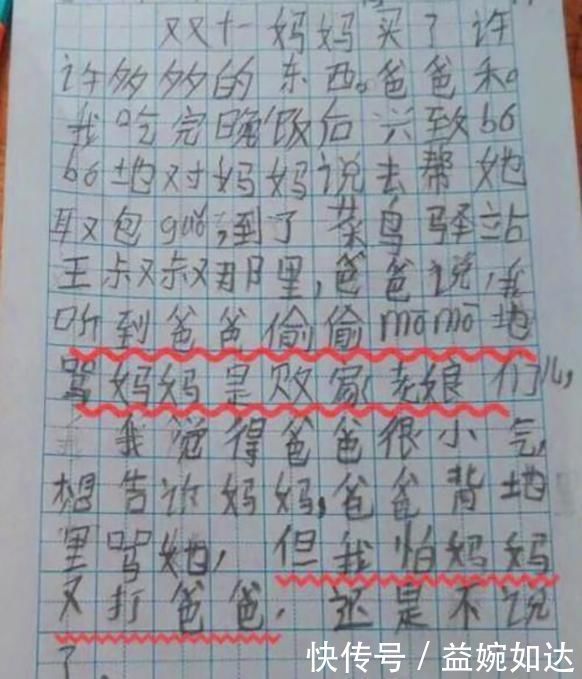 双十一妈妈买了许
许多多的东西。爸爸和。
我吃完晚饭后兴致bó
bó地对妈妈说去帮她
取包guǒ,到了菜鸟驿站
王叔叔那里,爸爸说,我
听到爸爸偷偷mōmō地
骂妈妈是败家老娘们儿,
我觉得爸爸很小气,
想告诉妈妈,爸爸背地
里骂她,但我怕妈妈
又打爸爸,还是不说
了.
快传号/益婉如达